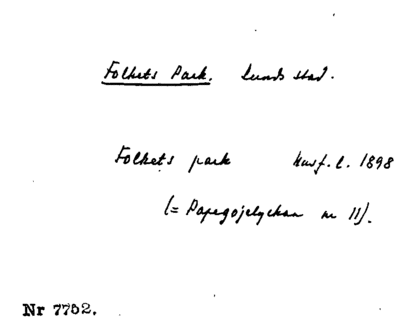 Folkets Park. Lunds stad.
Folkets park Husf. l. 1898
(= Papegojelyckan nr 11).
Nr 7752.